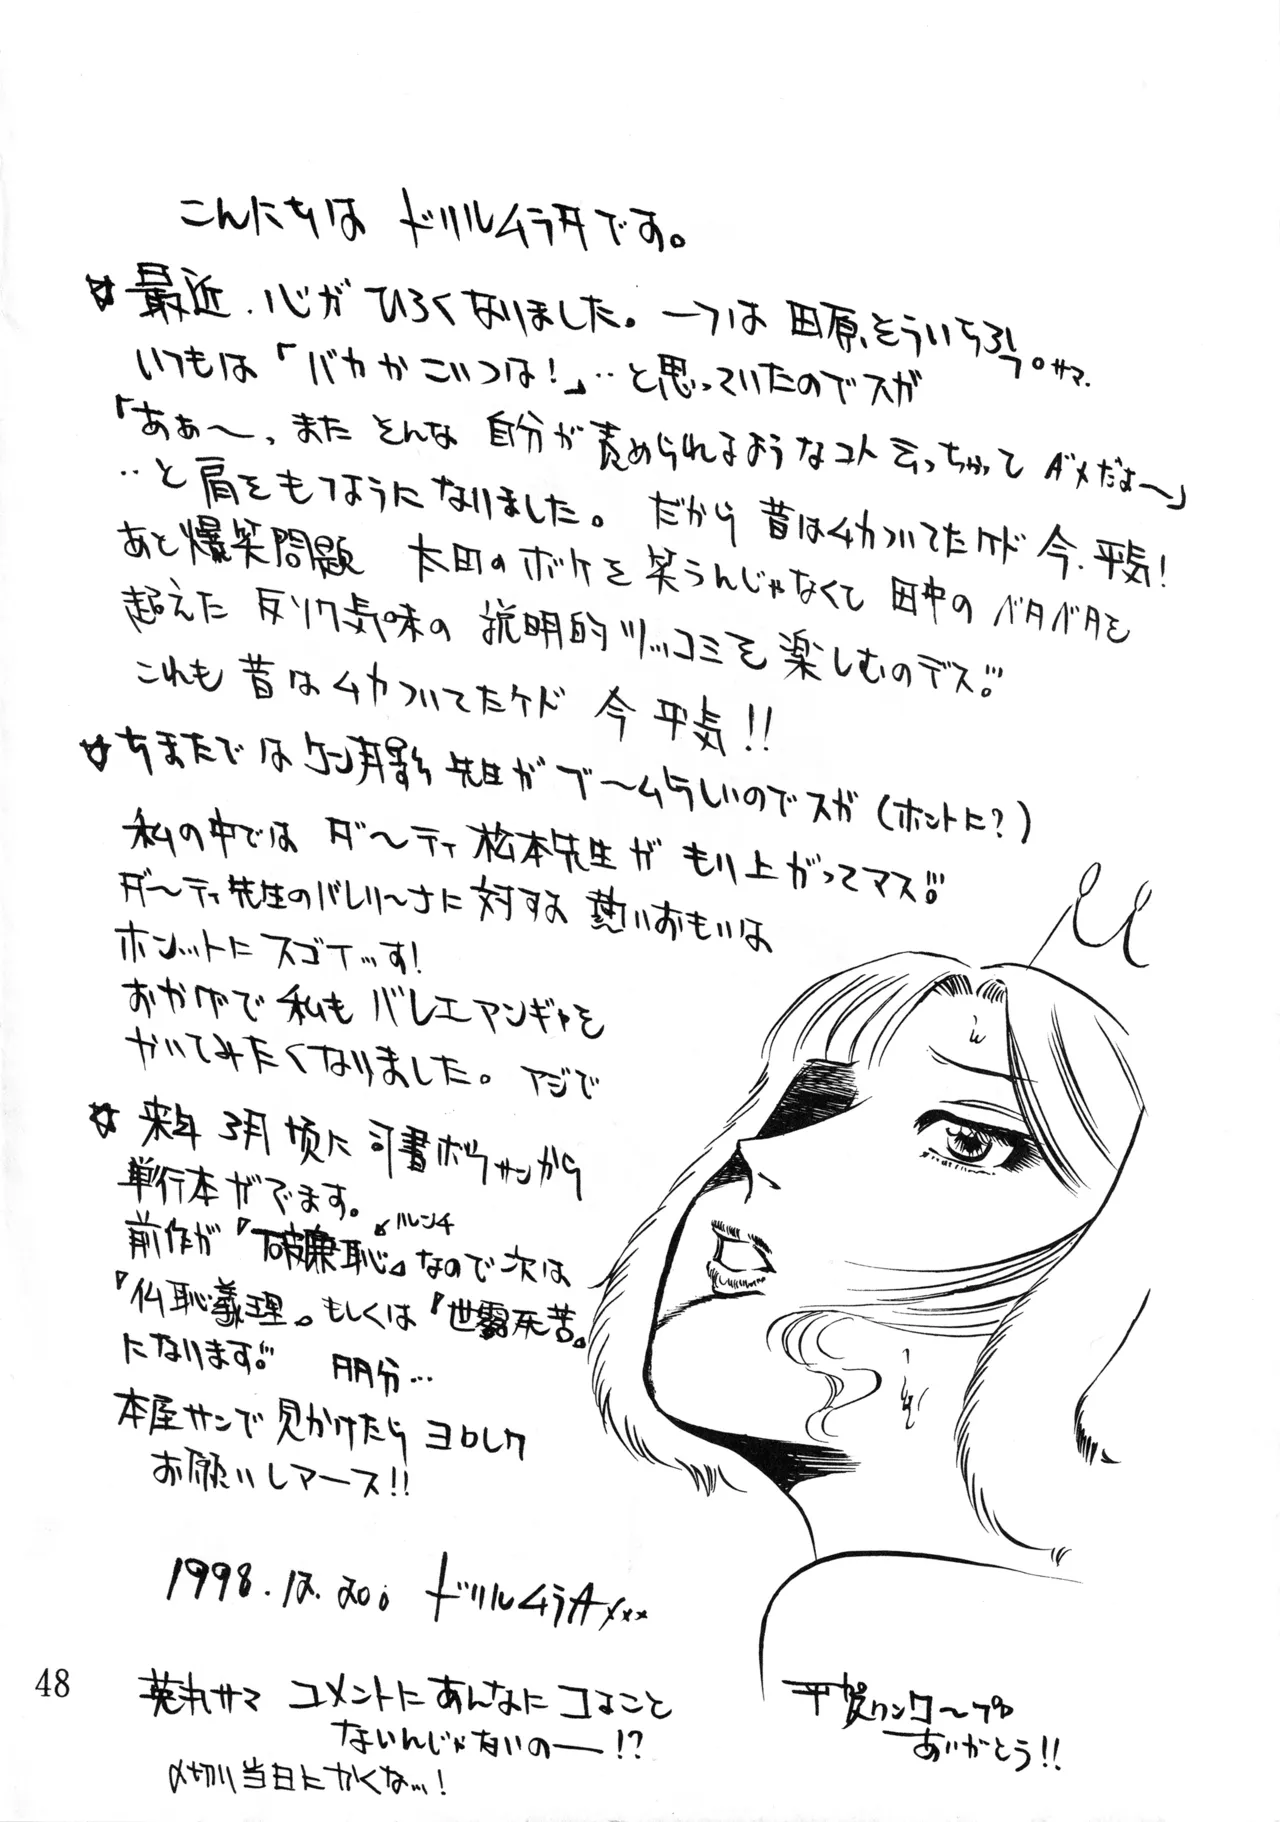 こんにちは ドリルムラタです。
☆最近、心がひろくなりました。一つは 田原そういちろうサマ。
いつもは「バカかこいつは!」‥と思っていたのでスガ
「あぁ〜、また そんな 自分が責められるようなコト 云っちゃって ダメだよ〜」
‥と肩をもつようになりました。 だから 昔はムカついてたケド 今、平気!
あと爆笑問題 太田のボケを笑うんじゃなくて 田中の ベタベタを
超えた 反ソク気味の 説明的ツッコミを 楽しむのデス!!
これも 昔はムカついてたケド 今 平気!!
☆ちまたでは ケン月影 先生が ブームらしいのでスガ(ホントに?)
私の中では ダ〜ティ 松本先生が もり上がってマス!!
ダ〜ティ先生のバレリ〜ナに 対する 熱いおもいは
ホンットに スゴイっす!
おかげで 私も バレエマンガを
かいてみたくなりました。 マジで
☆来年 3月 頃に 司書ボウサンから
単行本がでます。
前作が『破廉恥』なので 次は
ハレンチ
『仏恥義理』もしくは『世露死苦』
になります!! 多分…
本屋サンで 見かけたら ヨロシク
お願いしマース!!
1998.12.20. ドリルムラタ×××
48
サマ コメントに あんなに コること
ないんじゃないのー!?
〆切り当日にかくな…!
平賀
ありがとう!!